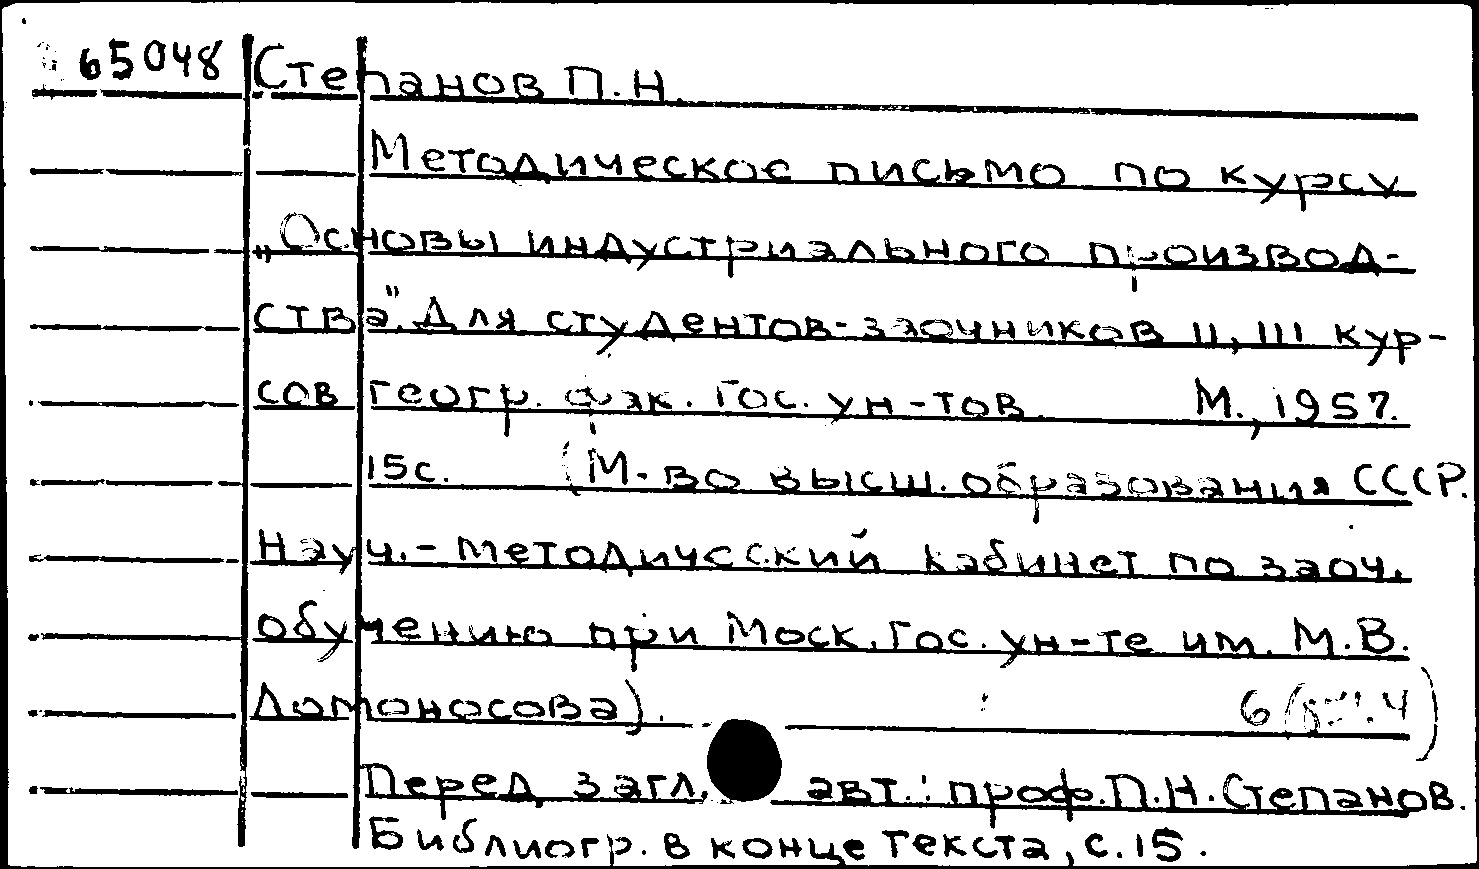 65048 Степанов П.Н.
Методическое письмо по курсу
„Основы индустриального производ-
ства". Для студентов-заочников II, III кур-
сов геогр. фак. Гос. ун-тов. М., 1957.
15с. (М-во высш. образования СССР.
Науч.-методический кабинет по заоч.
обучению при Моск. Гос. ун-те им. М.В.
Ломоносова). 6
Перед загл. авт.: проф. П.Н. Степанов.
Библиогр. в конце текста, с. 15.